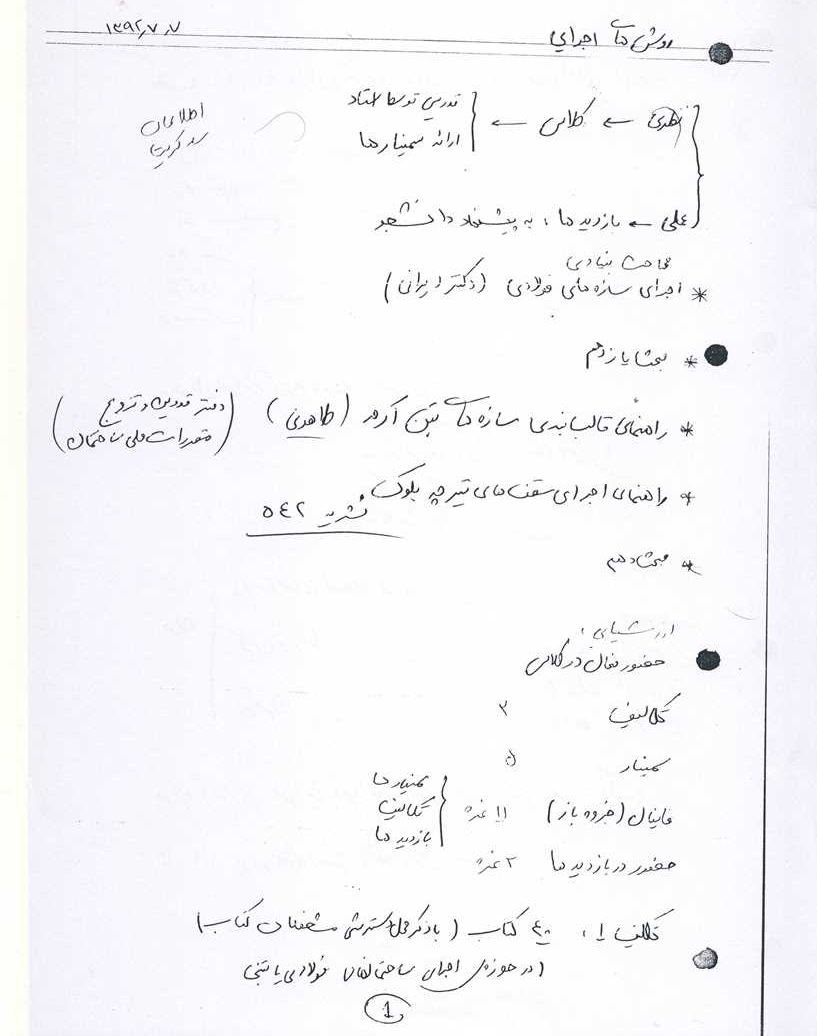 روش های اجرایی
۱۳۹۲٫۷٫۷
نظری ← کلاس ← تدریس توسط استاد
ارائه سمینارها
اطلاعات
عملی ← بازدیدها ، به پیشنهاد دانشجو
مباحث بنیادی
* اجرای سازه های فولادی (دکتر ایرانی)
* مبحث یازدهم
* راهنمای قالب بندی سازه های بتن آرمه (طاهونی) (دفتر تدوین و ترویج
مقررات ملی ساختمان)
* راهنمای اجرای سقف های تیرچه بلوک
نشریه ۵۴۲
* مبحث دهم
ارزشیابی :
حضور فعال در کلاس
تکالیف ۳
سمینار ۵
فاینال (جزوه باز) ۱۱ نمره
سمینارها
تکالیف
بازدیدها
حضور در بازدیدها ۲ نمره
تکلیف ۱ : ۴۰ کتاب (با ذکر محل دسترسی مشخصات کتاب)
(در حوزه ی اجرای ساختمانهای فولادی یا بتنی
1